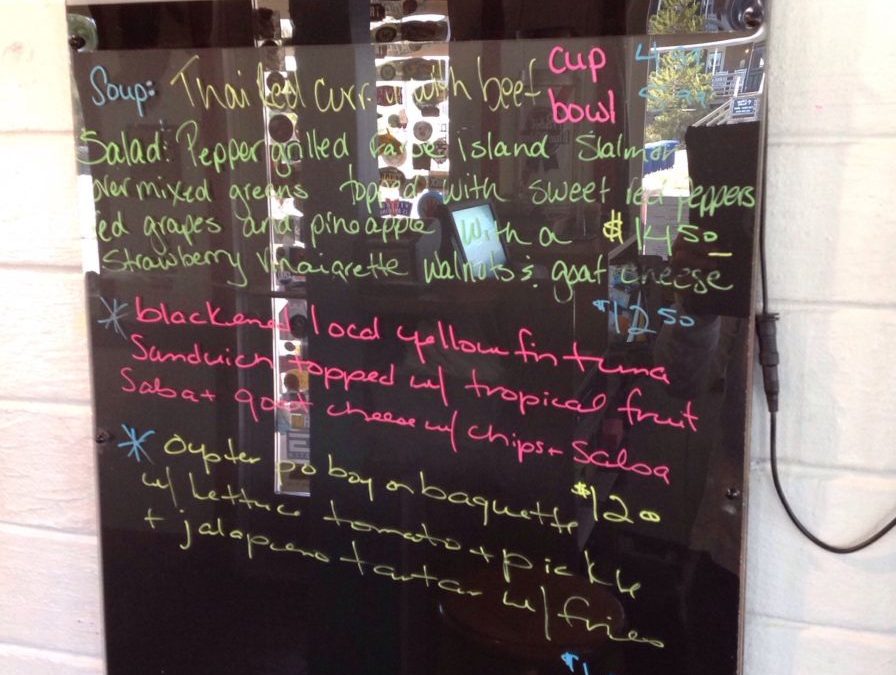 Soup: Thai Red curry with beef cup 4.99
bowl 5.99
Salad: Pepper grilled Faroe island Salmon
over mixed greens topped with sweet red peppers
red grapes and pineapple with a $14.50
Strawberry vinaigrette walnuts & goat cheese
* blackened local yellowfin tuna $12.50
Sandwich topped w/ tropical fruit
Salsa + goat cheese w/ chips + Salsa
* Oyster po boy on baguette $12.00
w/ Lettuce tomato + pickle
+ jalapeno tartar w/ fries